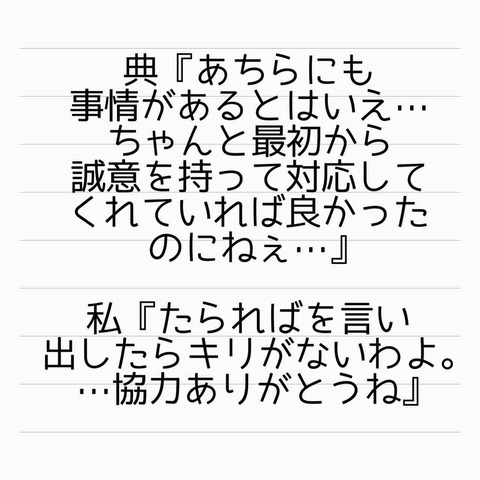 典『あちらにも
事情があるとはいえ…
ちゃんと最初から
誠意を持って対応して
くれていれば良かった
のにねぇ…』
私『たらればを言い
出したらキリがないわよ。
…協力ありがとうね』